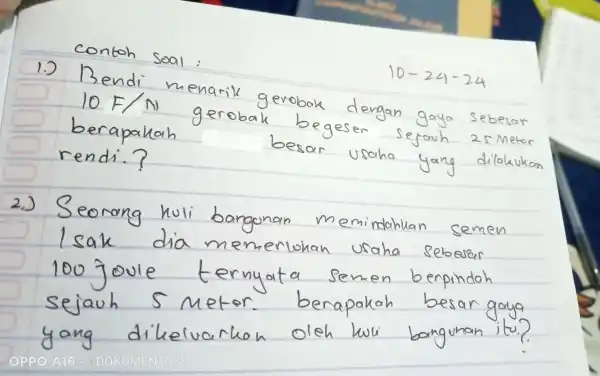 contoh soal :
10-24-24
1.) Bendi menarik gerobak dengan gaya sebesar
10 F/N gerobak begeser sejauh 25 Meter
berapakah besar usaha yang dilakukan
rendi.?
2.) Seorang kuli bangunan memindahkan semen
1 sak dia memerlukan usaha sebesar
100 Joule ternyata semen berpindah
sejauh 5 Meter. berapakah besar gaya
yang dikeluarkan oleh kuli bangunan itu?
OPPO A16